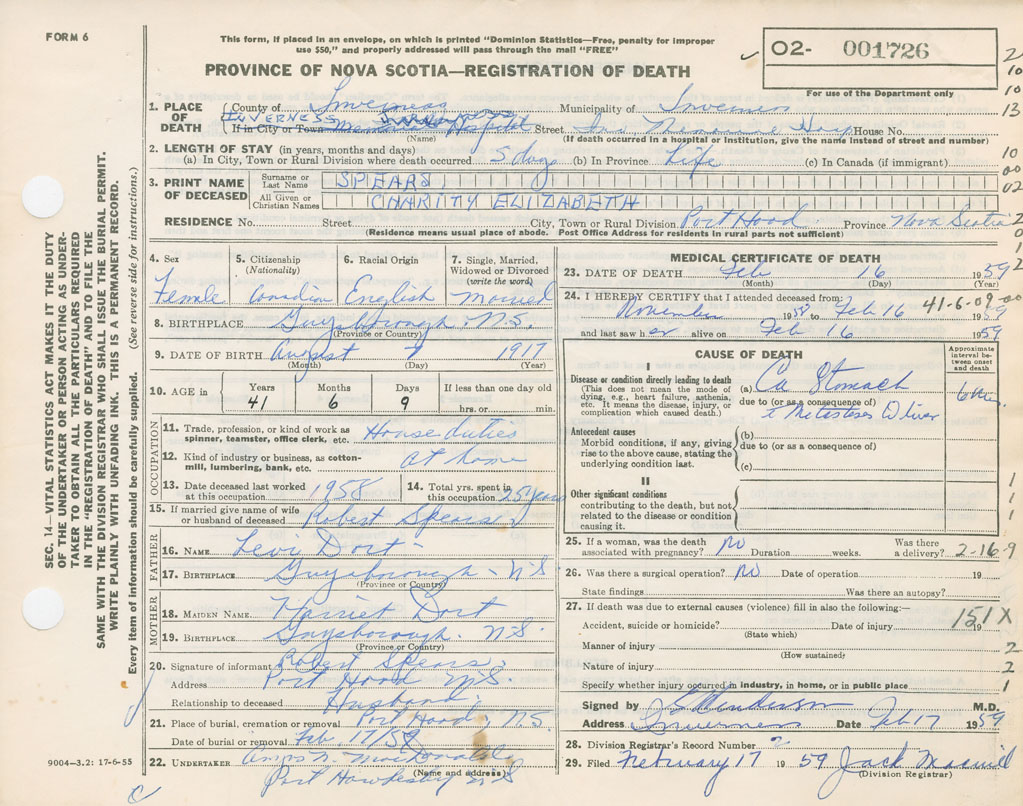 FORM 6
This form, if placed in an envelope, on which is printed "Dominion Statistics—Free, penalty for improper
use $50," and properly addressed will pass through the mail "FREE"
PROVINCE OF NOVA SCOTIA—REGISTRATION OF DEATH
02- 001726
For use of the Department only
2
10
10
13
10
00
02
2
0
1
2
SEC. 14—VITAL STATISTICS ACT MAKES IT THE DUTY
OF THE UNDERTAKER OR PERSON ACTING AS UNDER-
TAKER TO OBTAIN ALL THE PARTICULARS REQUIRED
IN THE "REGISTRATION OF DEATH" AND TO FILE THE
SAME WITH THE DIVISION REGISTRAR WHO SHALL ISSUE THE BURIAL PERMIT.
WRITE PLAINLY WITH UNFADING INK. THIS IS A PERMANENT RECORD.
Every item of information should be carefully supplied. (See reverse side for instructions.)
1. PLACE OF DEATH { County of Inverness Municipality of Inverness
INVERNESS
If in City or Town Memorial Hospital Street House No.
(Name) (If death occurred in a hospital or Institution, give the name instead of street and number)
2. LENGTH OF STAY (in years, months and days)
(a) In City, Town or Rural Division where death occurred 5 days (b) In Province Life (c) In Canada (if immigrant)
3. PRINT NAME OF DECEASED { Surname or Last Name SPEARS
All Given or Christian Names CHARITY ELIZABETH
RESIDENCE No. Street City, Town or Rural Division Port Hood Province Nova Scotia
(Residence means usual place of abode. Post Office Address for residents in rural parts not sufficient)
4. Sex 5. Citizenship (Nationality) 6. Racial Origin 7. Single, Married, Widowed or Divorced (write the word)
Female Canadian English Married
8. BIRTHPLACE Guysborough. N.S.
(Province or Country)
9. DATE OF BIRTH August 7 1917
(Month) (Day) (Year)
10. AGE in Years Months Days If less than one day old
41 6 9 hrs. or min.
OCCUPATION
11. Trade, profession, or kind of work as spinner, teamster, office clerk, etc. House duties
12. Kind of industry or business, as cotton-mill, lumbering, bank, etc. at home
13. Date deceased last worked at this occupation 1958 14. Total yrs. spent in this occupation 25 years
15. If married give name of wife or husband of deceased Robert Spears
FATHER
16. NAME Levi Dort
17. BIRTHPLACE Guysborough - N.S.
(Province or Country)
MOTHER
18. MAIDEN NAME Harriet Dort
19. BIRTHPLACE Guysborough. N.S.
(Province or Country)
20. Signature of informant Robert Spears
Address Port Hood N.S.
Relationship to deceased Husband
21. Place of burial, cremation or removal Port Hood, NS
Date of burial or removal Feb. 17/59
22. UNDERTAKER MacDonald
Port Hawkesbury N.S.
(Name and address)
9004—3.2: 17-6-55
MEDICAL CERTIFICATE OF DEATH
23. DATE OF DEATH Feb 16 1959
(Month) (Day) (Year)
24. I HEREBY CERTIFY that I attended deceased from: 41-6-09-00
November 1958 to Feb 16 1959
and last saw her alive on Feb 16 1959
CAUSE OF DEATH
Approximate interval between onset and death
I
Disease or condition directly leading to death
(This does not mean the mode of dying, e.g., heart failure, asthenia, etc. It means the disease, injury, or complication which caused death.)
(a) Ca Stomach
due to (or as a consequence of)
Antecedent causes
Morbid conditions, if any, giving rise to the above cause, stating the underlying condition last.
(b)
due to (or as a consequence of)
(c)
II
Other significant conditions
contributing to the death, but not related to the disease or condition causing it.
1
1
1
25. If a woman, was the death associated with pregnancy? No Duration weeks. Was there a delivery? 2-16-9
26. Was there a surgical operation? No Date of operation 19
State findings Was there an autopsy?
27. If death was due to external causes (violence) fill in also the following:—
Accident, suicide or homicide? Date of injury 19 151X
(State which)
Manner of injury 2
(How sustained)
Nature of injury 2
Specify whether injury occurred in industry, in home, or in public place 1
Signed by Henderson M.D.
Address Inverness Date Feb 17 1959
28. Division Registrar's Record Number 2
29. Filed February 17 1959 Jack
(Division Registrar)